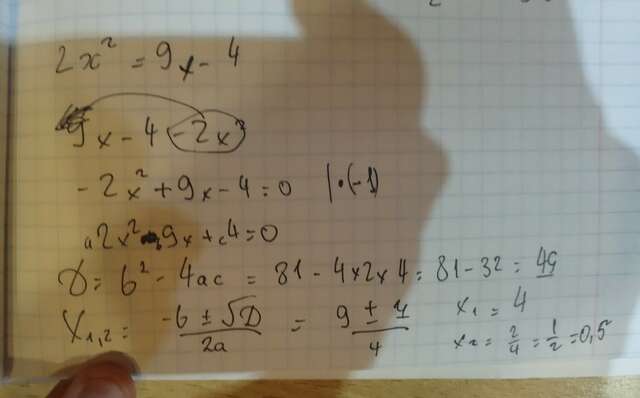 2x² = 9x - 4
9x - 4 - 2x²
-2x² + 9x - 4 = 0 |·(-1)
a2x² - b9x + c4 = 0
D = b² - 4ac = 81 - 4×2×4 = 81 - 32 = 49
X₁,₂ = (-b ± √D)/2a = (9 ± 7)/4
x₁ = 4
x₂ = 2/4 = 1/2 = 0,5